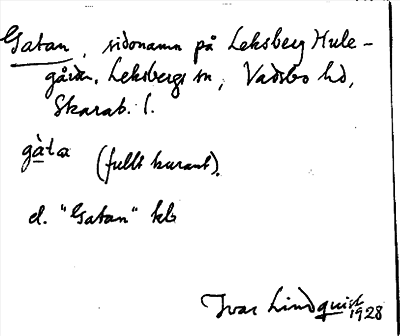 Gatan, sidonamn på Leksberg Hule-
gården, Leksbergs sn, Vadsbo hd,
Skarab. l.
gàta (fullt kurant).
el. "Gatan" kl.
Ivar Lindquist 1928